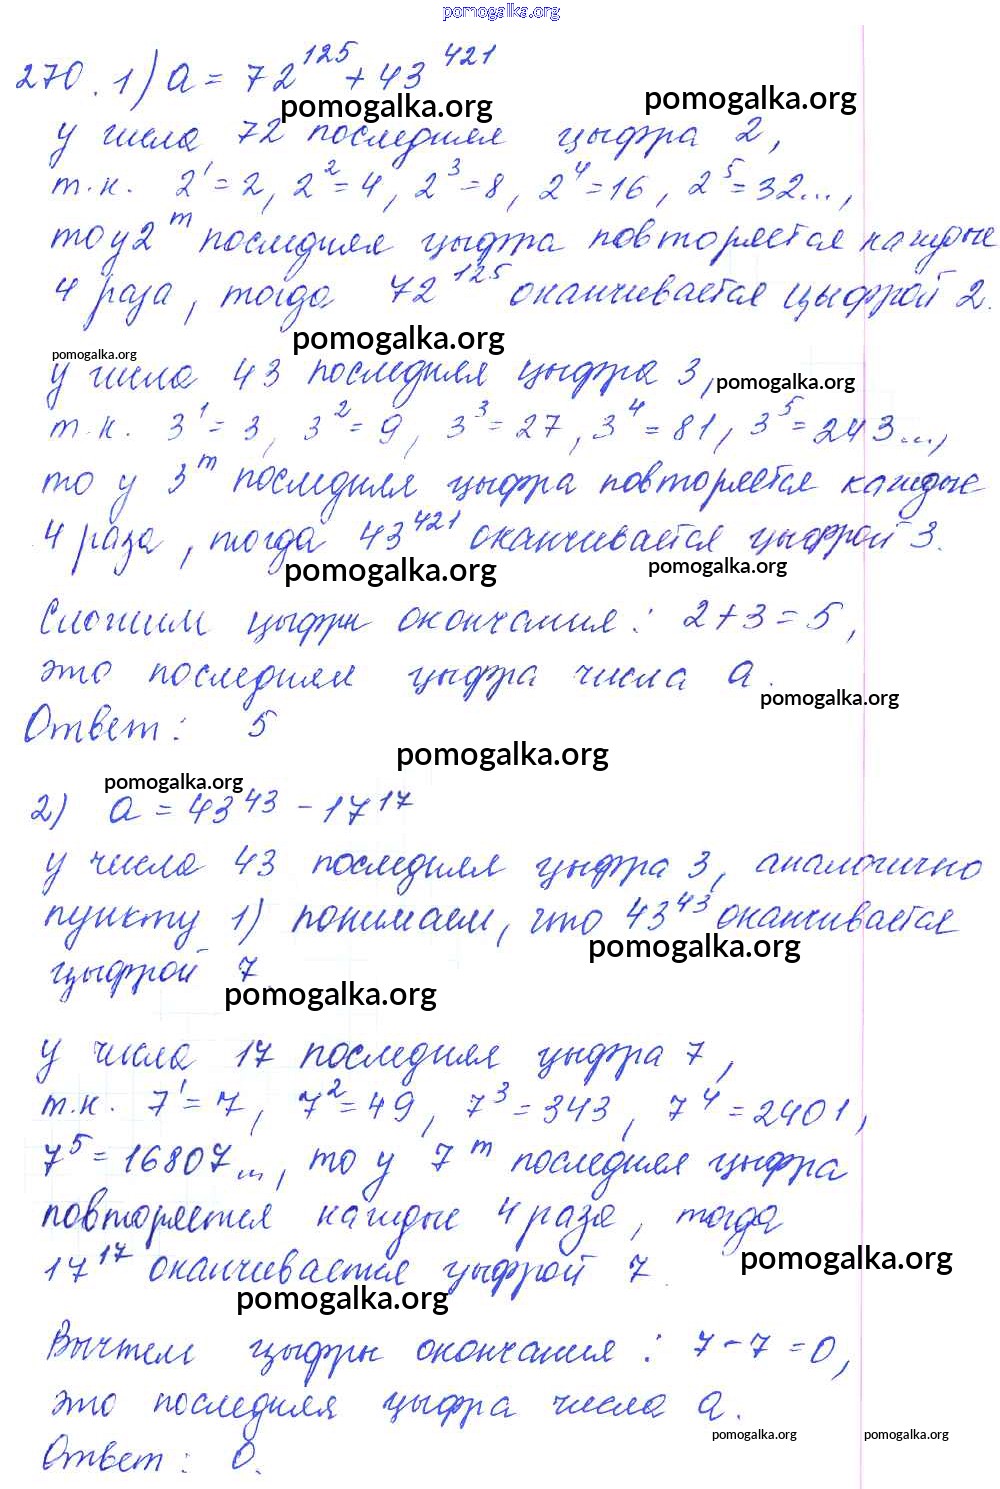 pomogalka.org
270. 1) a = 72^125 + 43^421
pomogalka.org pomogalka.org
у числа 72 последняя цыфра 2,
т.к. 2^1 = 2, 2^2 = 4, 2^3 = 8, 2^4 = 16, 2^5 = 32...,
то у 2^m последняя цыфра повторяется каждые
4 раза, тогда 72^125 оканчивается цыфрой 2.
pomogalka.org
pomogalka.org
у числа 43 последняя цыфра 3,
pomogalka.org
т.к. 3^1 = 3, 3^2 = 9, 3^3 = 27, 3^4 = 81, 3^5 = 243...,
то у 3^m последняя цыфра повторяется каждые
4 раза, тогда 43^421 оканчивается цыфрой 3.
pomogalka.org pomogalka.org
Сложим цыфры окончания: 2+3=5,
это последняя цыфра числа a.
pomogalka.org
Ответ: 5
pomogalka.org
pomogalka.org
2) a = 43^43 - 17^17
у числа 43 последняя цыфра 3, аналогично
пункту 1) понимаем, что 43^43 оканчивается
pomogalka.org
цыфрой 7
pomogalka.org
у числа 17 последняя цыфра 7,
т.к. 7^1 = 7, 7^2 = 49, 7^3 = 343, 7^4 = 2401,
7^5 = 16807..., то у 7^m последняя цыфра
повторяется каждые 4 раза, тогда
17^17 оканчивается цыфрой 7.
pomogalka.org
pomogalka.org
Вычтем цыфры окончания: 7-7=0,
это последняя цыфра числа a.
pomogalka.org pomogalka.org
Ответ: 0.